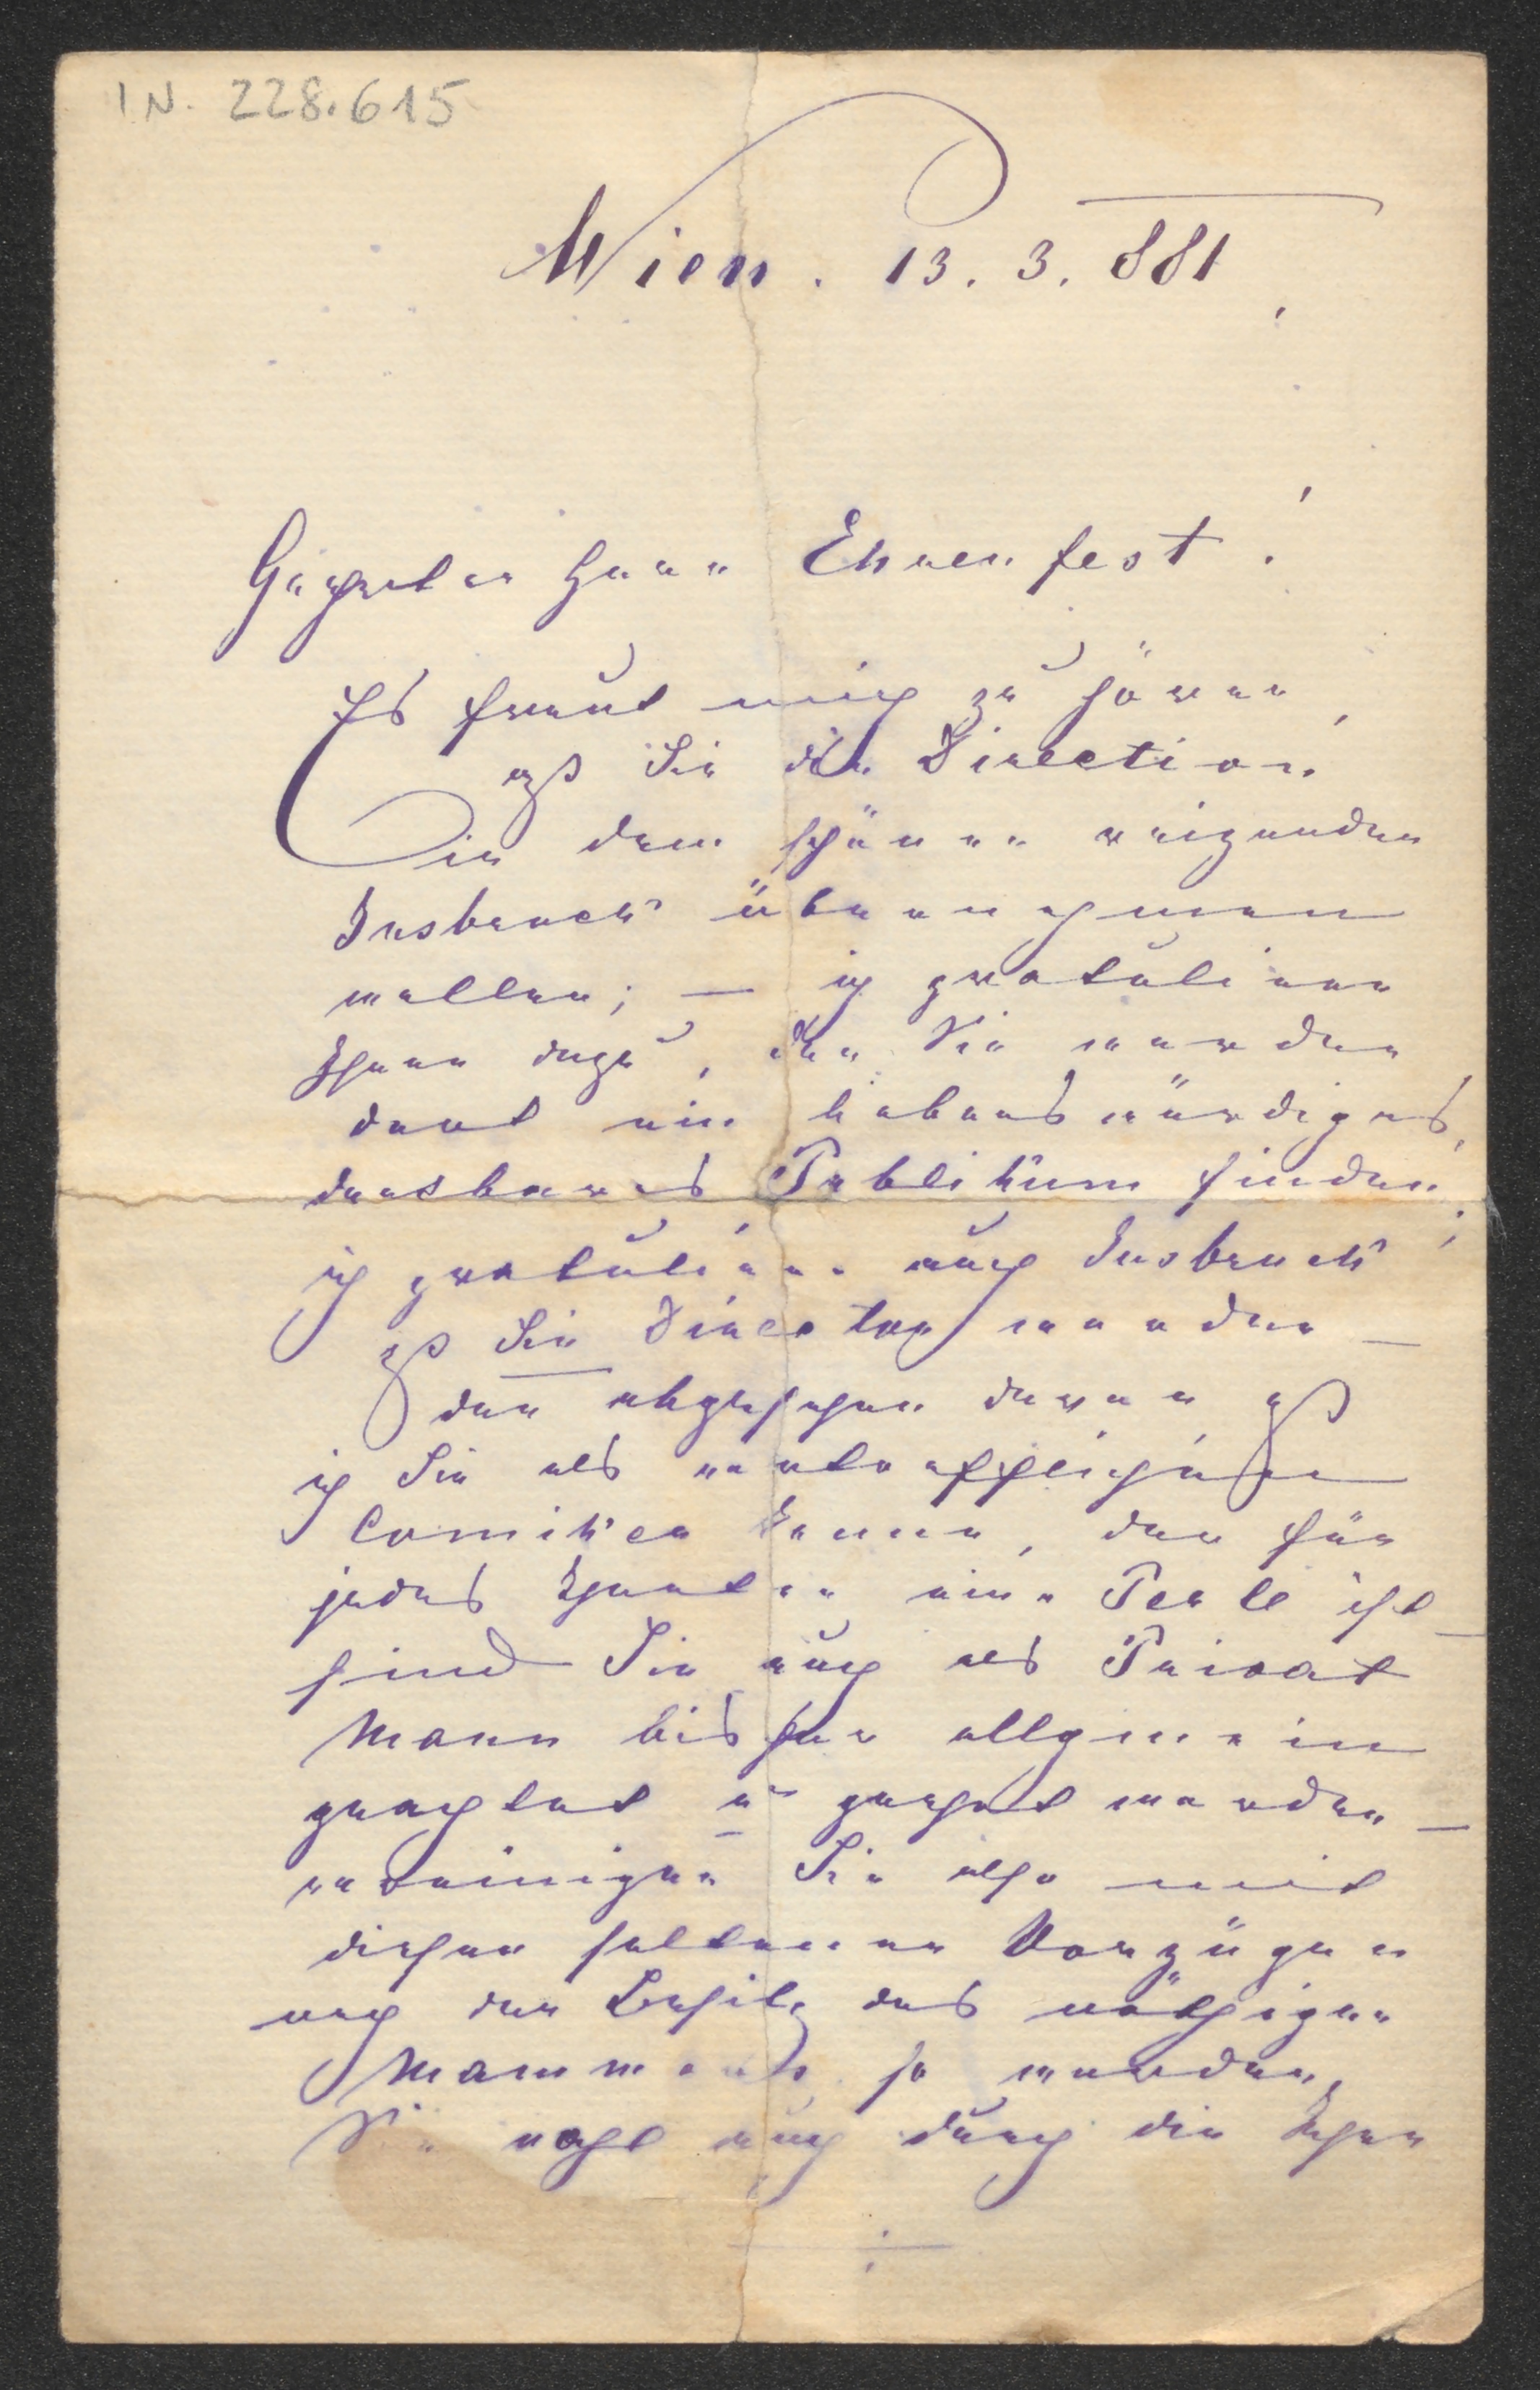 IN. 228.615
Wien. 13. 3. 881
Geehrter Herr Ehrenfest!
Es freut mich zu hören,
daß Sie die Direction
in dem schönen reizenden
Insbruck übernehmen
wollen; — ich gratuliere
Ihnen dazu, den Sie werden
dort ein liebenswürdiges,
dankbares Publikum finden;
ich gratuliere auch Insbruck
daß Sie Director werden —
den abgesehen davon daß
ich Sie als vortrefflichen
Comiker kenne, der für
jedes Theater eine Perle ist —
sind Sie auch als Privat
Mann bisher allgemein
geachtet u geehrt worden —
vereinigen Sie also mit
diesen seltenen Vorzügen
noch den Besitz des nöthigen
Mammons so werden
Sie wohl auch durch die Ihren